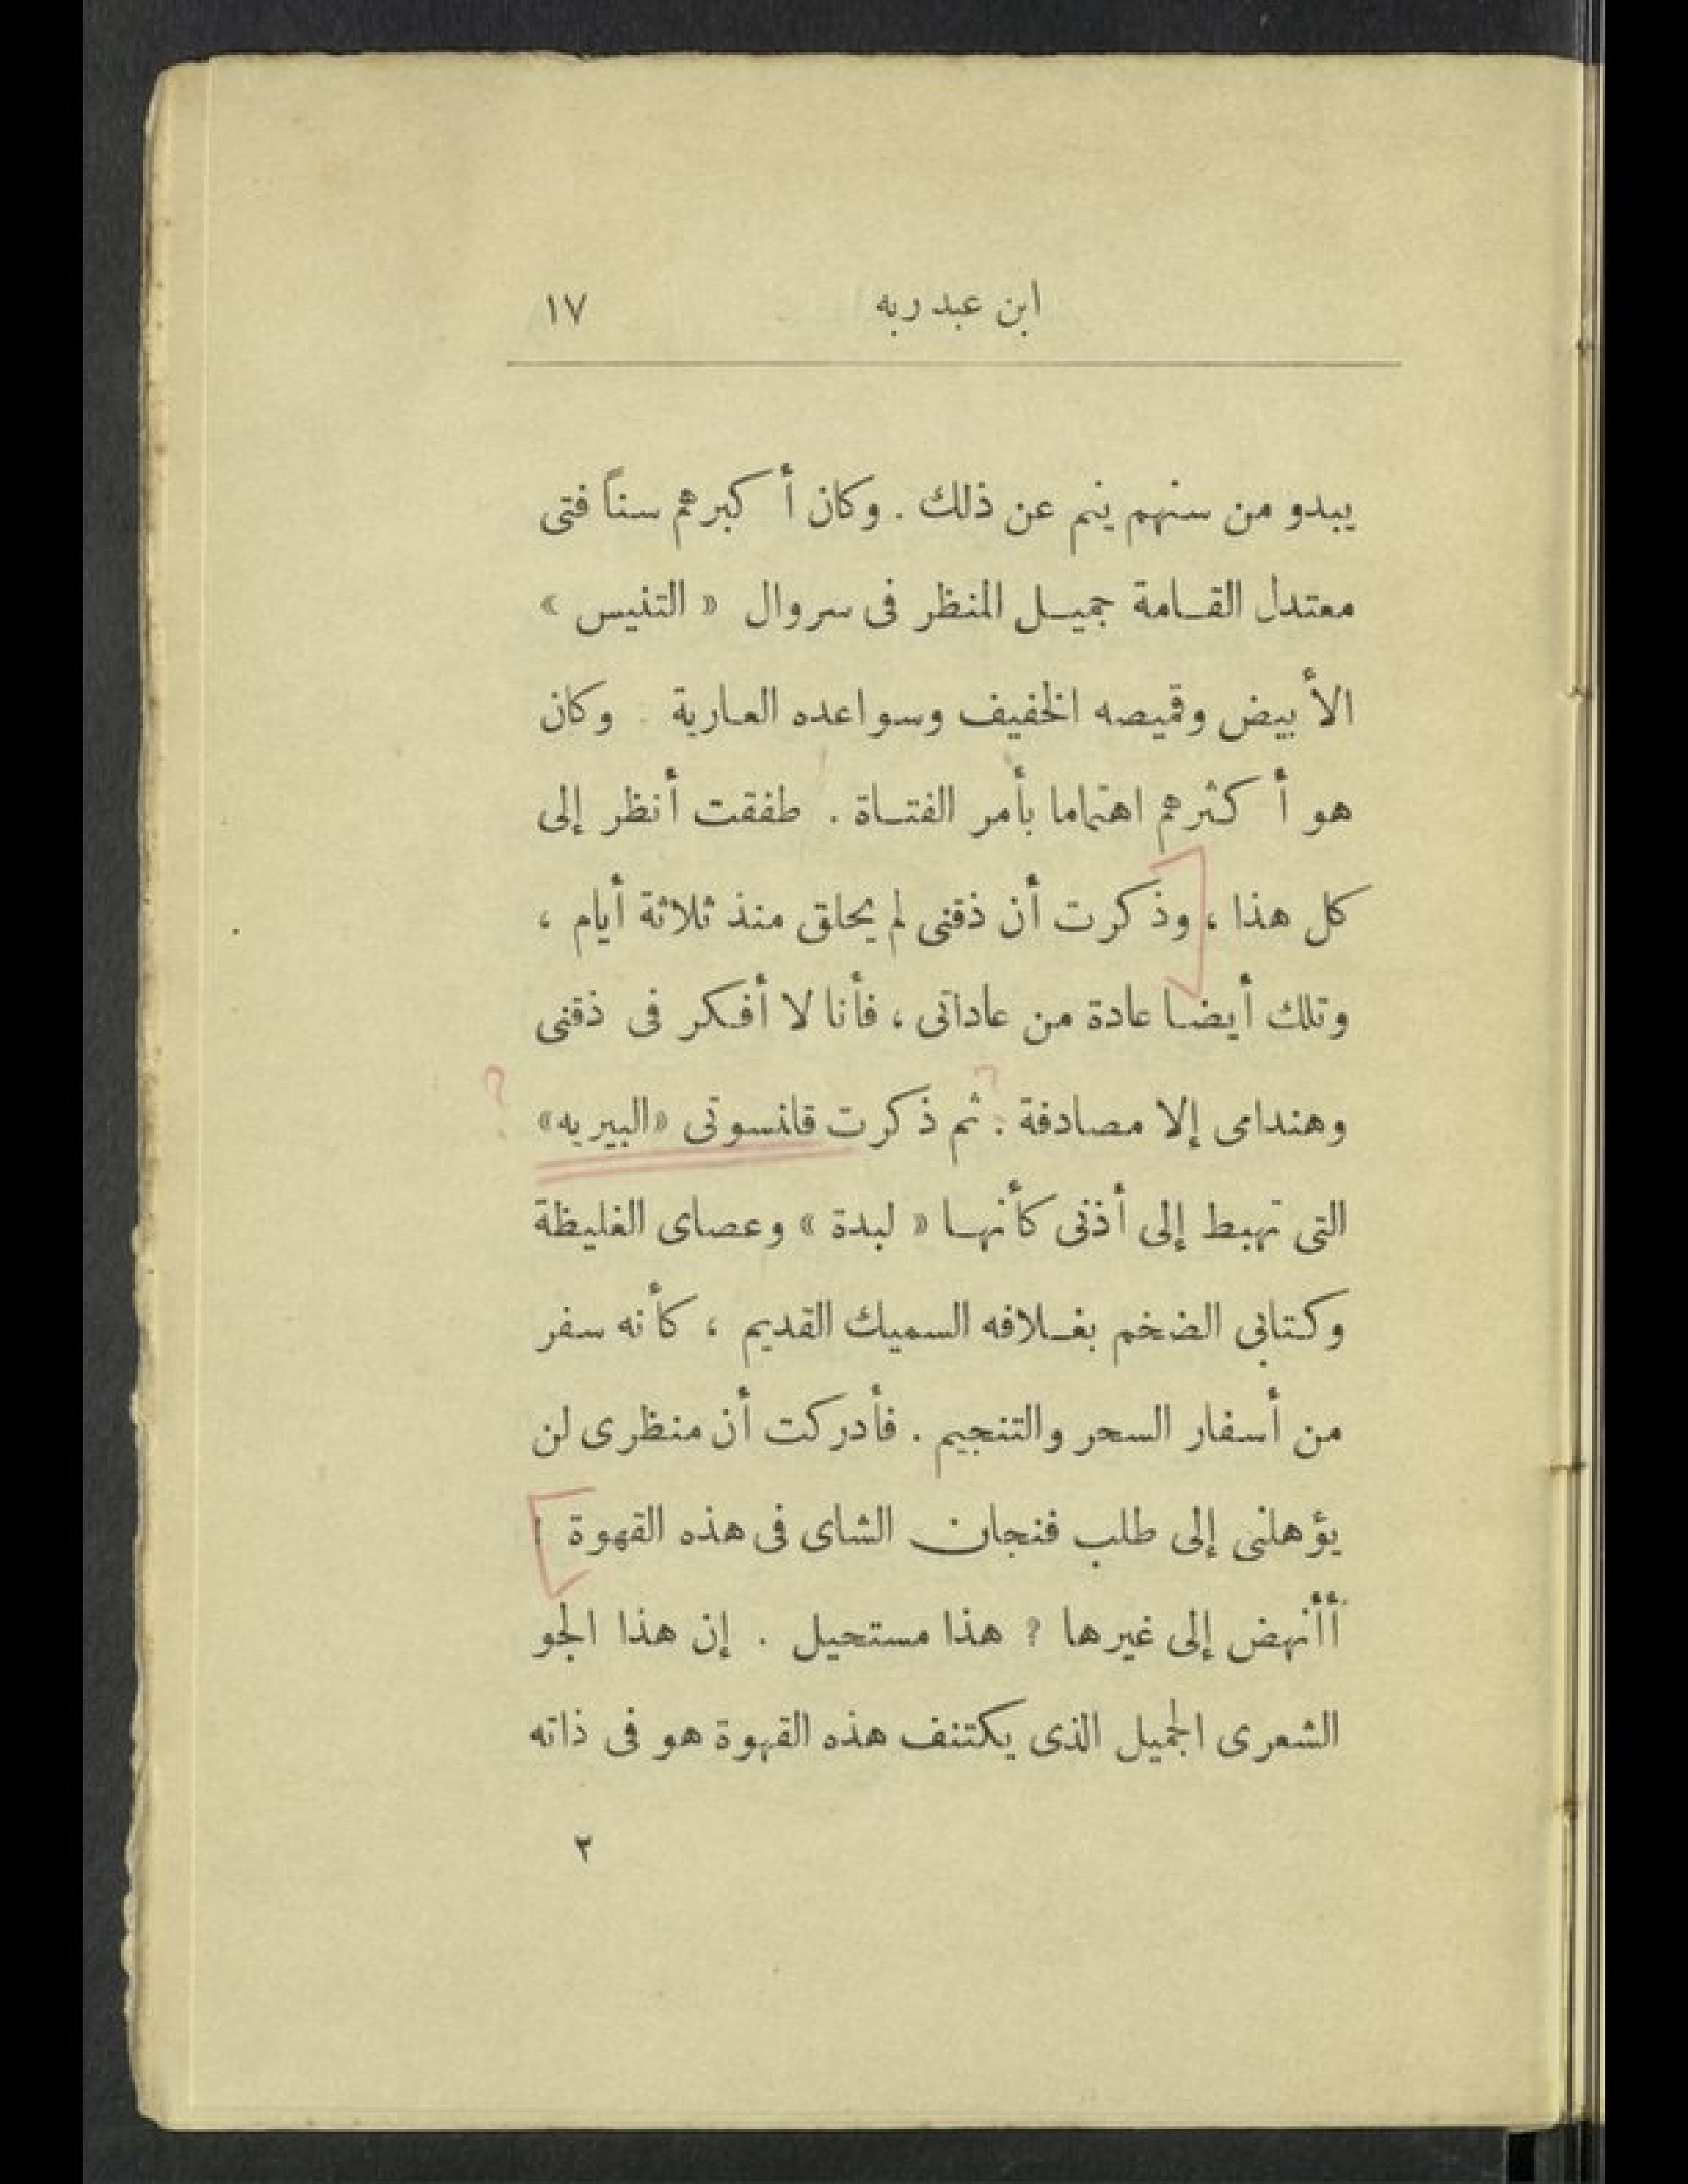 ابن عبد ربه ١٧
يبدو من سنهم ينم عن ذلك . وكان أكبرهم سناً فتى
معتدل القامة جميل المنظر فى سروال « التنيس »
الأبيض وقميصه الخفيف وسواعده العارية . وكان
هو أكثرهم اهتماما بأمر الفتاة . طفقت أنظر إلى
كل هذا ، وذكرت أن ذقنى لم يحلق منذ ثلاثة أيام ،
وتلك أيضا عادة من عاداتى ، فأنا لا أفكر فى ذقنى
وهندامى إلا مصادفة . ثم ذكرت قلنسوتى «البيريه» ؟
التى تهبط إلى أذنى كأنها « لبدة » وعصاى الغليظة
وكتابى الضخم بغلافه السميك القديم ، كأنه سفر
من أسفار السحر والتنجيم . فأدركت أن منظرى لن
يؤهلنى إلى طلب فنجان الشاى فى هذه القهوة !
أأنهض إلى غيرها ? هذا مستحيل . إن هذا الجو
الشعرى الجميل الذى يكتنف هذه القهوة هو فى ذاته
٢